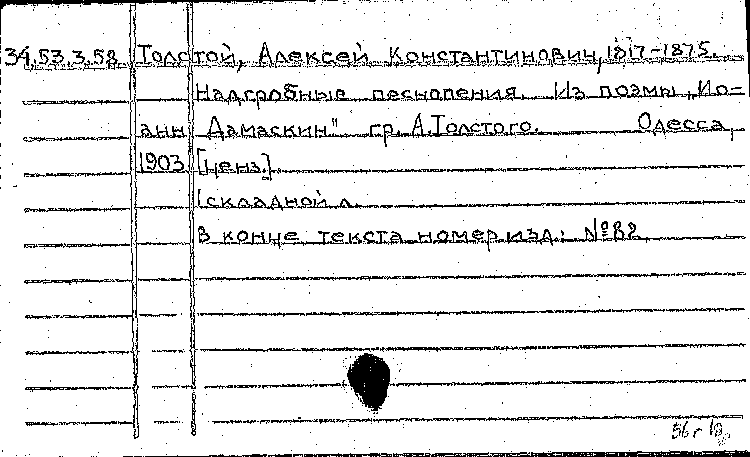 34.53.3.58 Толстой, Алексей Константинович, 1817-1875.
Надгробные песнопения. Из поэмы „Ио-
анн Дамаскин" гр. А.Толстого. Одесса,
1903 [ценз.]
1складной л.
В конце текста номер изд.: №82